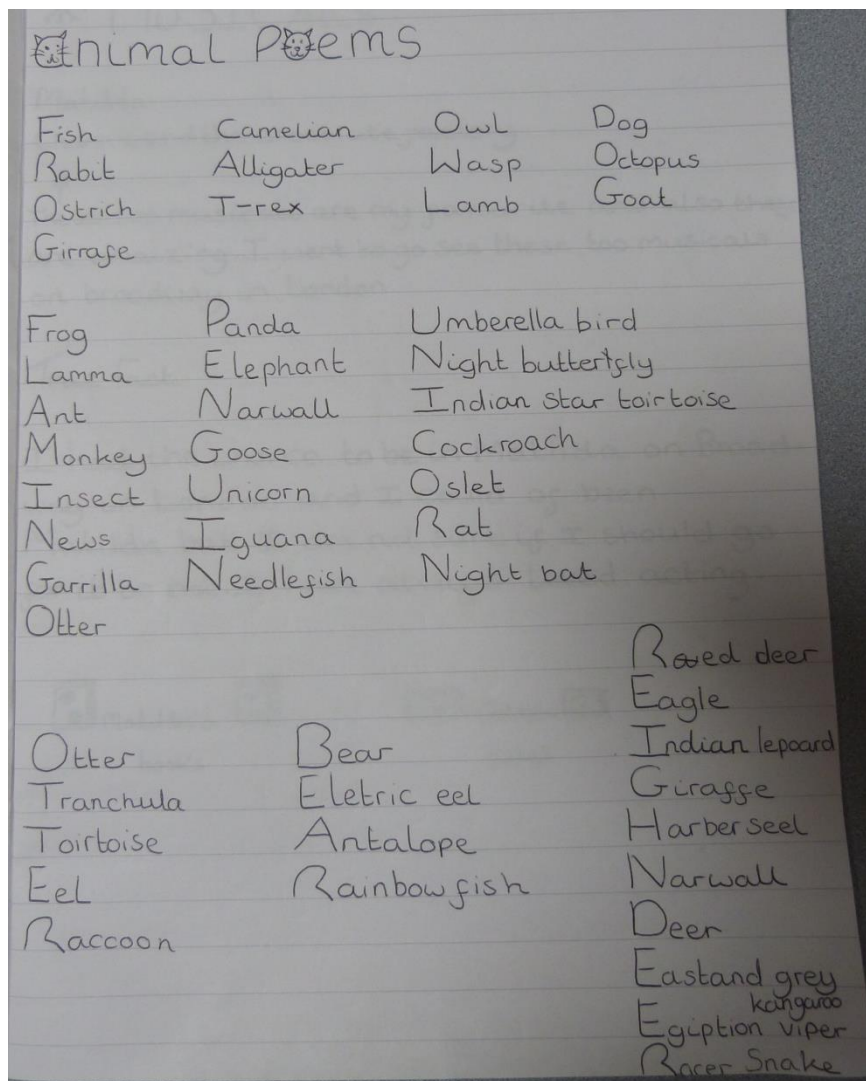 Animal Poems
Fish
Rabit
Ostrich
Girrafe
Camelian
Alligater
T-rex
Owl
Wasp
Lamb
Dog
Octopus
Goat
Frog
Lamma
Ant
Monkey
Insect
News
Garrilla
Otter
Panda
Elephant
Narwall
Goose
Unicorn
Iguana
Needlefish
Umberella bird
Night buttertfly
Indian star toirtoise
Cockroach
Oslet
Rat
Night bat
Otter
Tranchula
Toirtoise
Eel
Raccoon
Bear
Eletric eel
Antalope
Rainbow fish
Red deer
Eagle
Indian lepoard
Giraffe
Harber seel
Narwall
Deer
Eastand grey
kangaroo
Egiption viper
Racer Snake